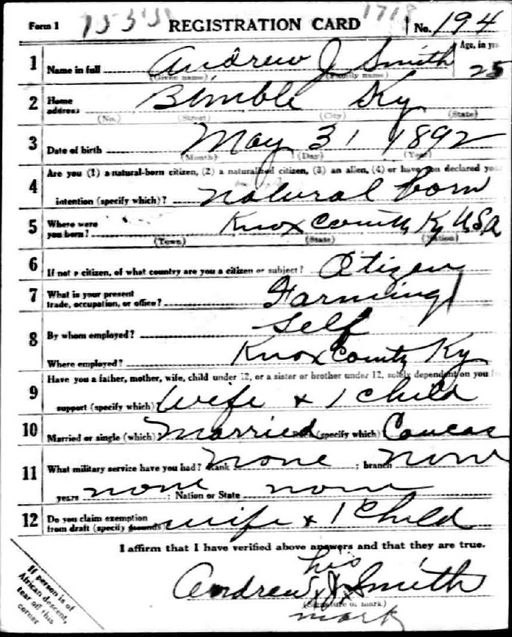 Form 1 REGISTRATION CARD 1718 No. 194
Age, in yrs
1 Name in full Andrew J Smith 25
(Given name) (Family name)
2 Home address Bimble Ky
(No.) (Street) (City) (State)
3 Date of birth May 31 1892
(Month) (Day) (Year)
4 Are you (1) a natural-born citizen, (2) a naturalized citizen, (3) an alien, (4) or have you declared your
intention (specify which)? natural born
5 Where were you born? Knox County Ky USA
(Town) (State) (Nation)
6 If not a citizen, of what country are you a citizen or subject? Citizen
7 What is your present trade, occupation, or office? Farming
8 By whom employed? Self
Where employed? Knox County Ky
9 Have you a father, mother, wife, child under 12, or a sister or brother under 12, solely dependent on you for
support (specify which) Wife + 1 child
10 Married or single (which) Married (specify which) Caucas
11 What military service have you had? Rank none ; branch none
years none ; Nation or State none
12 Do you claim exemption from draft (specify grounds) wife + 1 child
I affirm that I have verified above answers and that they are true.
his
Andrew J X Smith
(Signature or mark)
mark
If person is of
African descent,
tear off this
corner